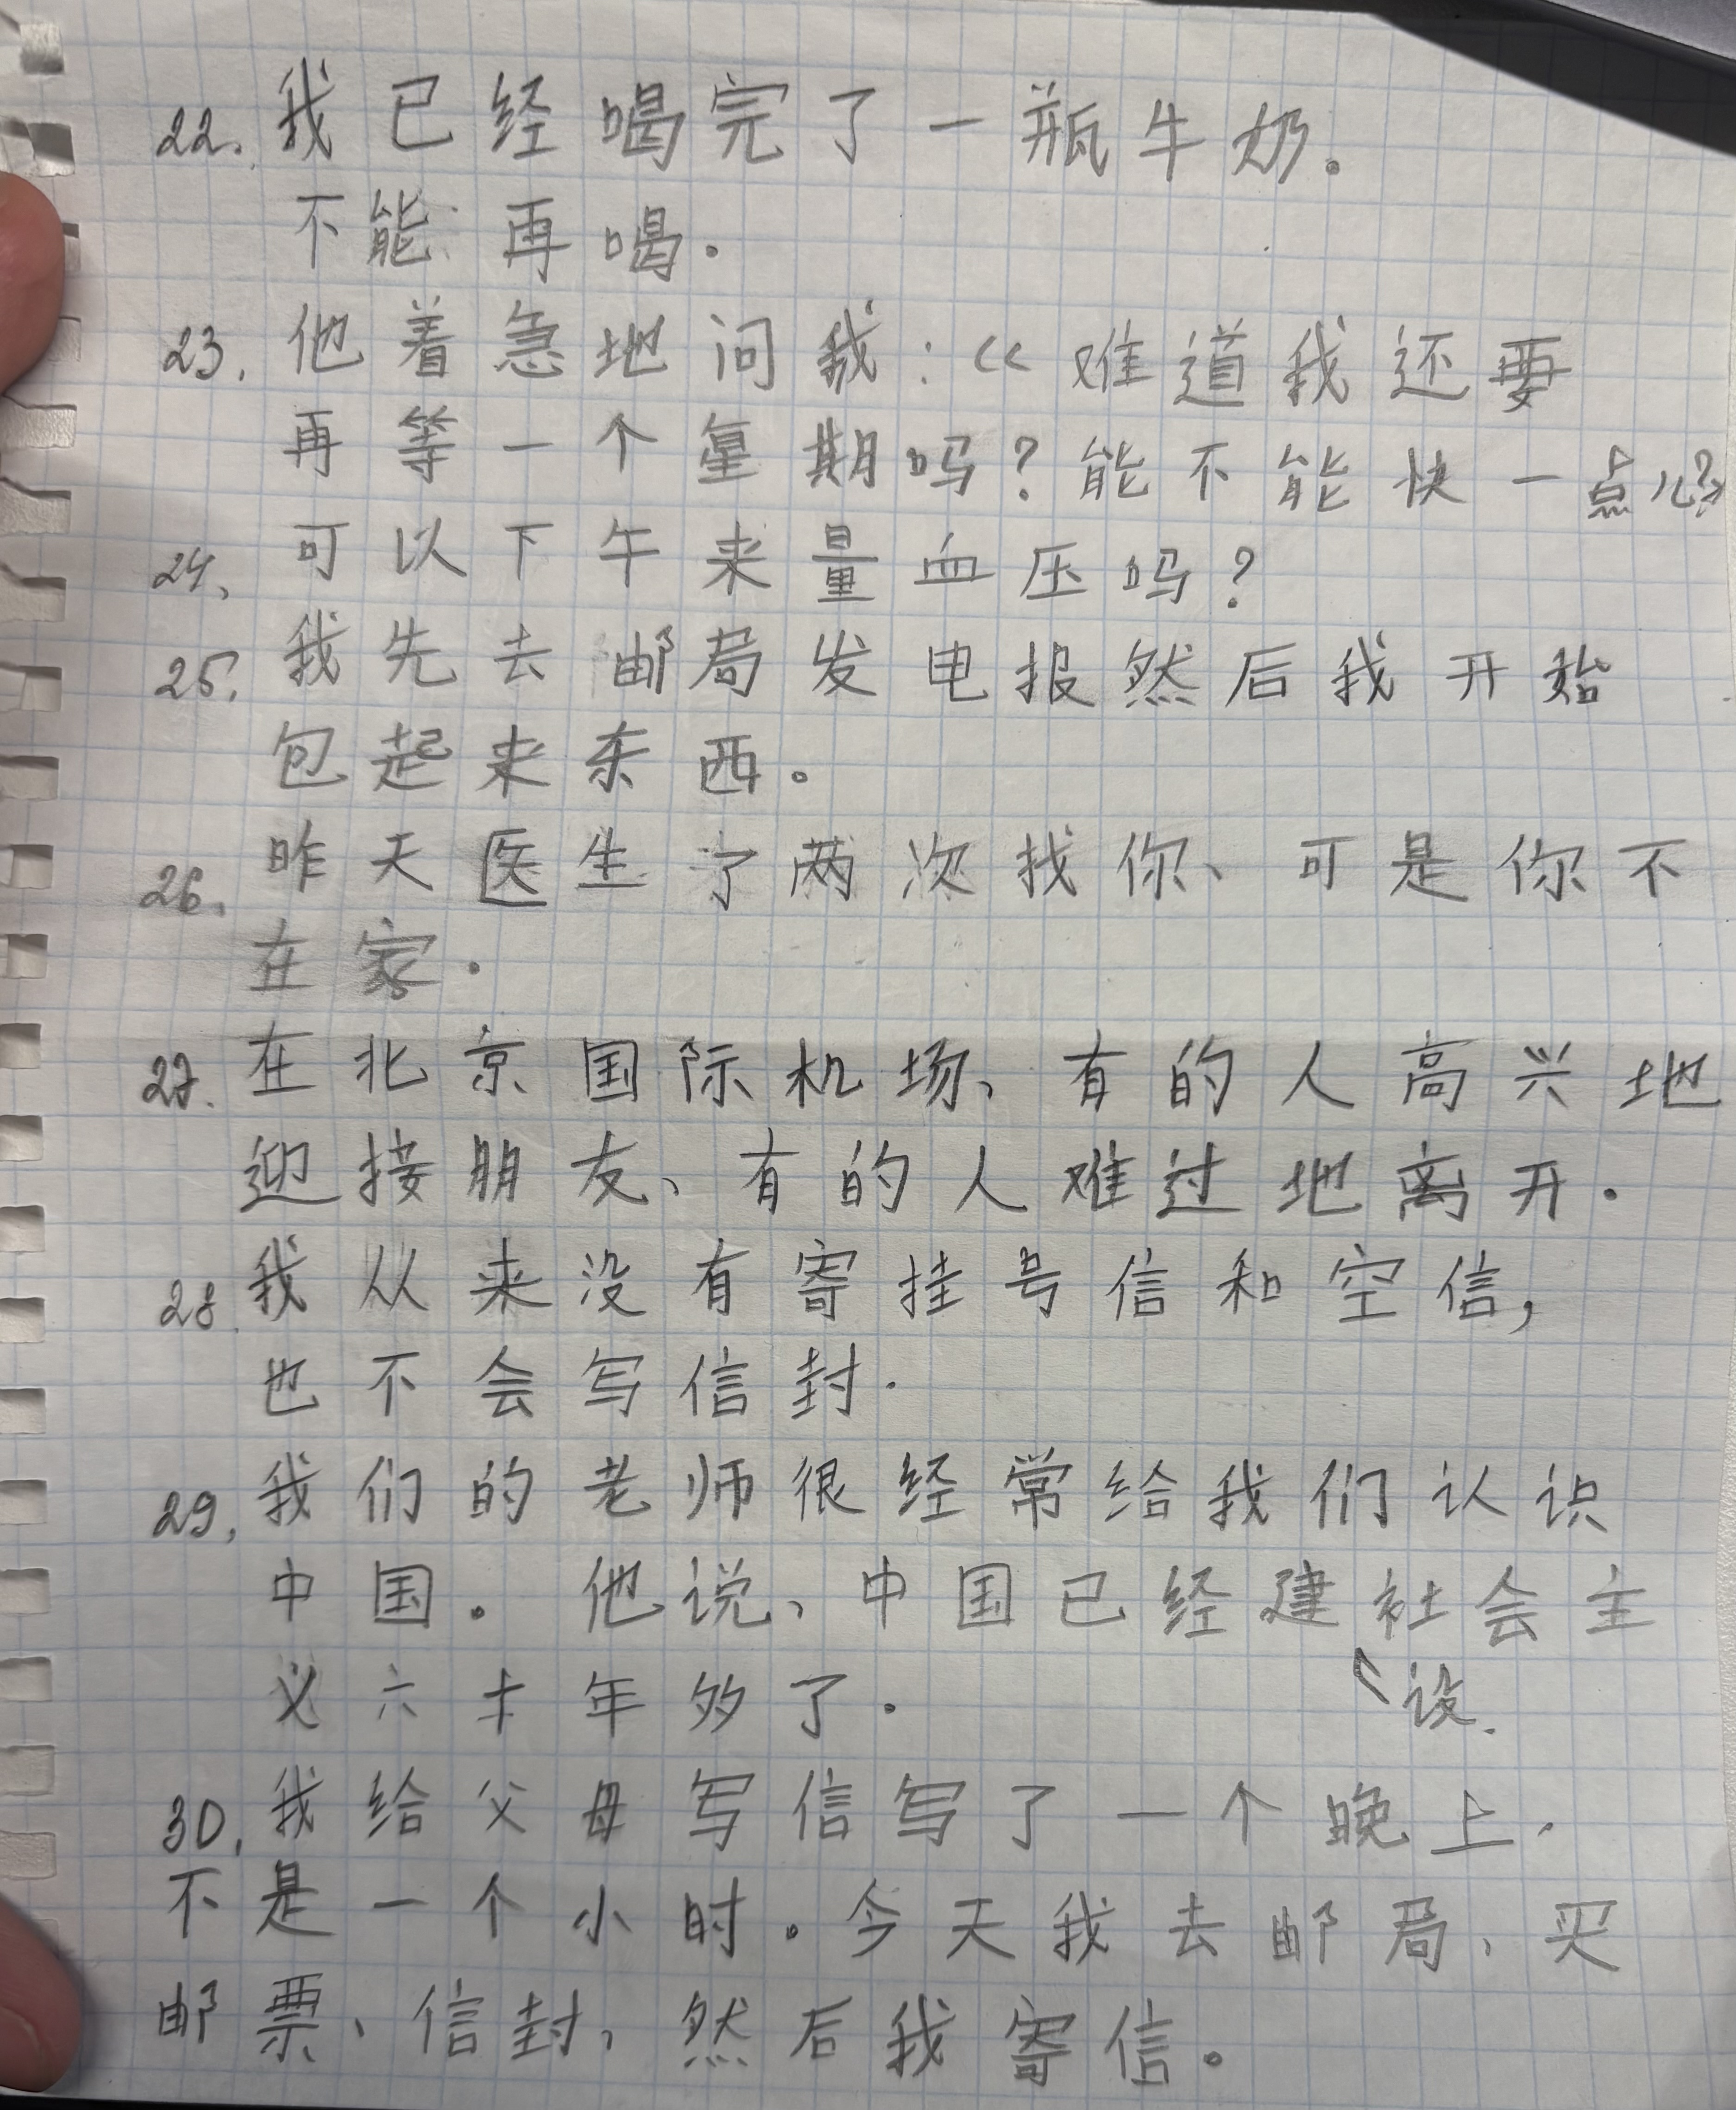 22. 我已经喝完了一瓶牛奶。
不能再喝.
23. 他着急地问我:<<难道我还要
再等一个星期吗?能不能快一点儿?>>
24. 可以下午来量血压吗?
25. 我先去邮局发电报然后我开始
包起来东西。
26. 昨天医生了两次找你、可是你不
在家.
27. 在北京国际机场、有的人高兴地
迎接朋友、有的人难过地离开.
28. 我从来没有寄挂号信和空信,
也不会写信封.
29. 我们的老师很经常给我们认识
中国。他说、中国已经建社会主
义六十年多了. 设.
30. 我给父母写信写了一个晚上.
不是一个小时。今天我去邮局、买
邮票、信封、然后我寄信。